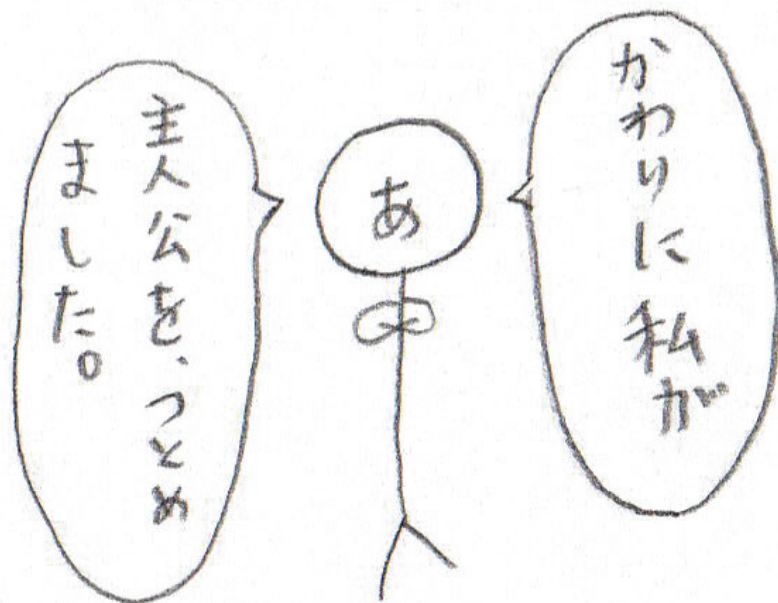 かわりに私が
あ
主人公を、つとめ
ました。